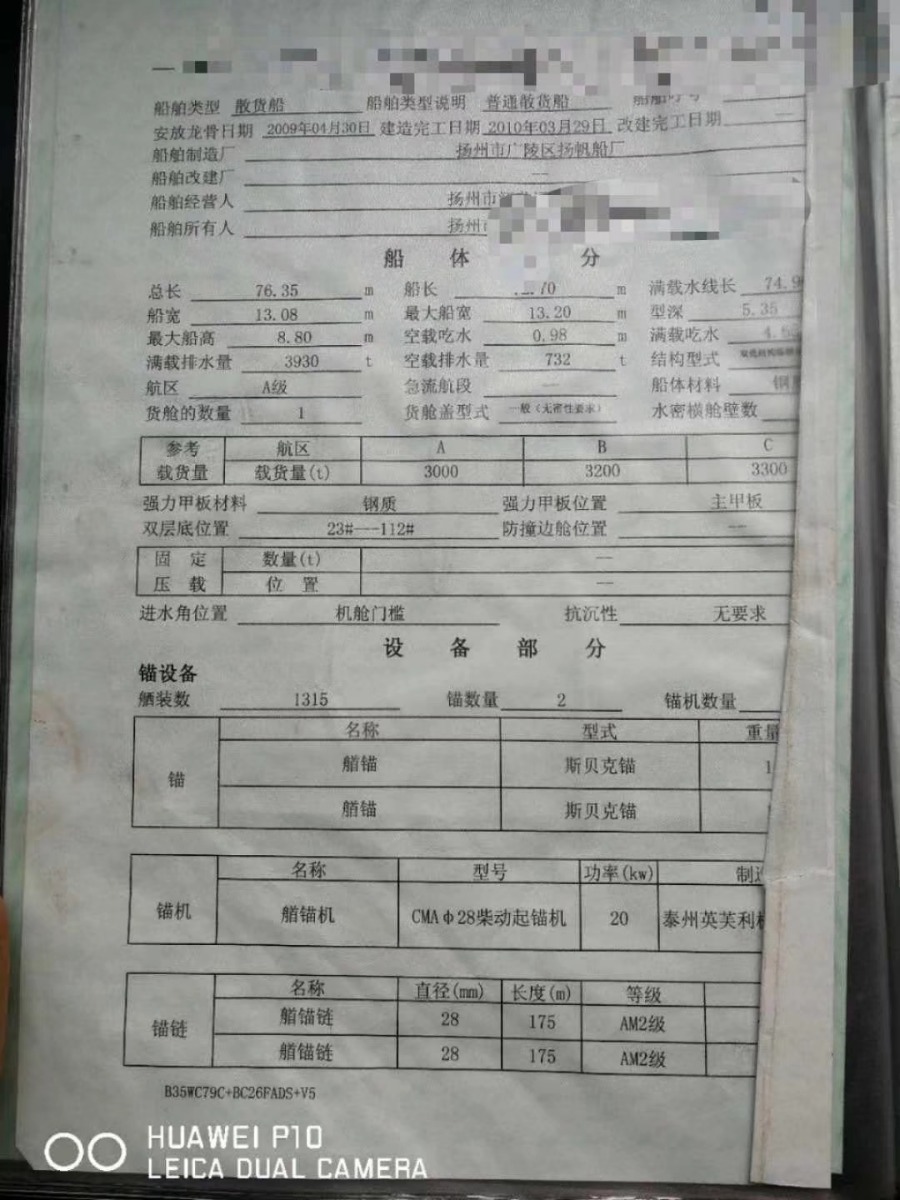 船舶类型 散货船 船舶类型说明 普通散货船
安放龙骨日期 2009年04月30日 建造完工日期 2010年03月29日 改建完工日期 —
船舶制造厂 扬州市广陵区扬帆船厂
船舶改建厂 —
船舶经营人 扬州市
船舶所有人 扬州
船 体 分
总长 76.35 m 船长 70 m 满载水线长 74.9
船宽 13.08 m 最大船宽 13.20 m 型深 5.35
最大船高 8.80 m 空载吃水 0.98 m 满载吃水
满载排水量 3930 t 空载排水量 732 t 结构型式
航区 A级 急流航段 — 船体材料 钢
货舱的数量 1 货舱盖型式 一般(无密性要求) 水密横舱壁数
参考 航区 A B C
载货量 载货量(t) 3000 3200 3300
强力甲板材料 钢质 强力甲板位置 主甲板
双层底位置 23#---112# 防撞边舱位置 —
固 定 数量(t) —
压 载 位 置 —
进水角位置 机舱门槛 抗沉性 无要求
设 备 部 分
锚设备
舾装数 1315 锚数量 2 锚机数量
名称 型式 重量
锚 艏锚 斯贝克锚 1
艏锚 斯贝克锚
名称 型号 功率(kw) 制造
锚机 艏锚机 CMAφ28柴动起锚机 20 泰州英芙利
名称 直径(mm) 长度(m) 等级
锚链 艏锚链 28 175 AM2级
艏锚链 28 175 AM2级
B35WC79C+BC26FADS+V5
HUAWEI P10
LEICA DUAL CAMERA